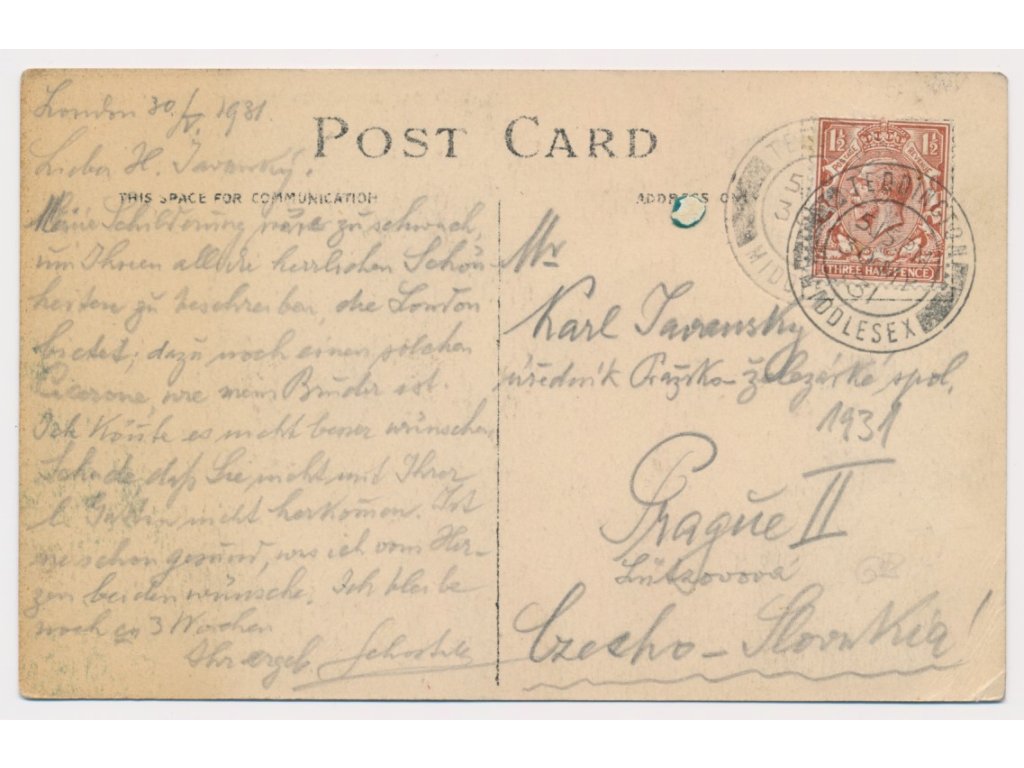 London 30./V. 1931.
POST CARD
Lieber H. Javanský!
THIS SPACE FOR COMMUNICATION
ADDRESS
Meine Schilderung wäre zu schwach,
um Ihnen all die herrlichen Schön-
heiten zu beschreiben, die London
bietet; dazu noch einen solchen
Cicerone, wie mein Bruder ist.
Ich könte es nicht besser wünschen.
Schade, daß Sie nicht mit Ihrer
l. Gattin nicht herkomen. Ist
schon gesund, was ich vom Her-
zen beiden wünsche. Ich bleibe
noch ca 3 Wochen
Ihr ergeb
Mr
Karl Javansky
úředník Pražsko-železářské spol.
1931
Prague II
Lützovová
Czecho-Slovakia!
1½ 1½
POSTAGE REVENUE
THREE HALFPENCE
TEDDINGTON
MIDDLESEX
31